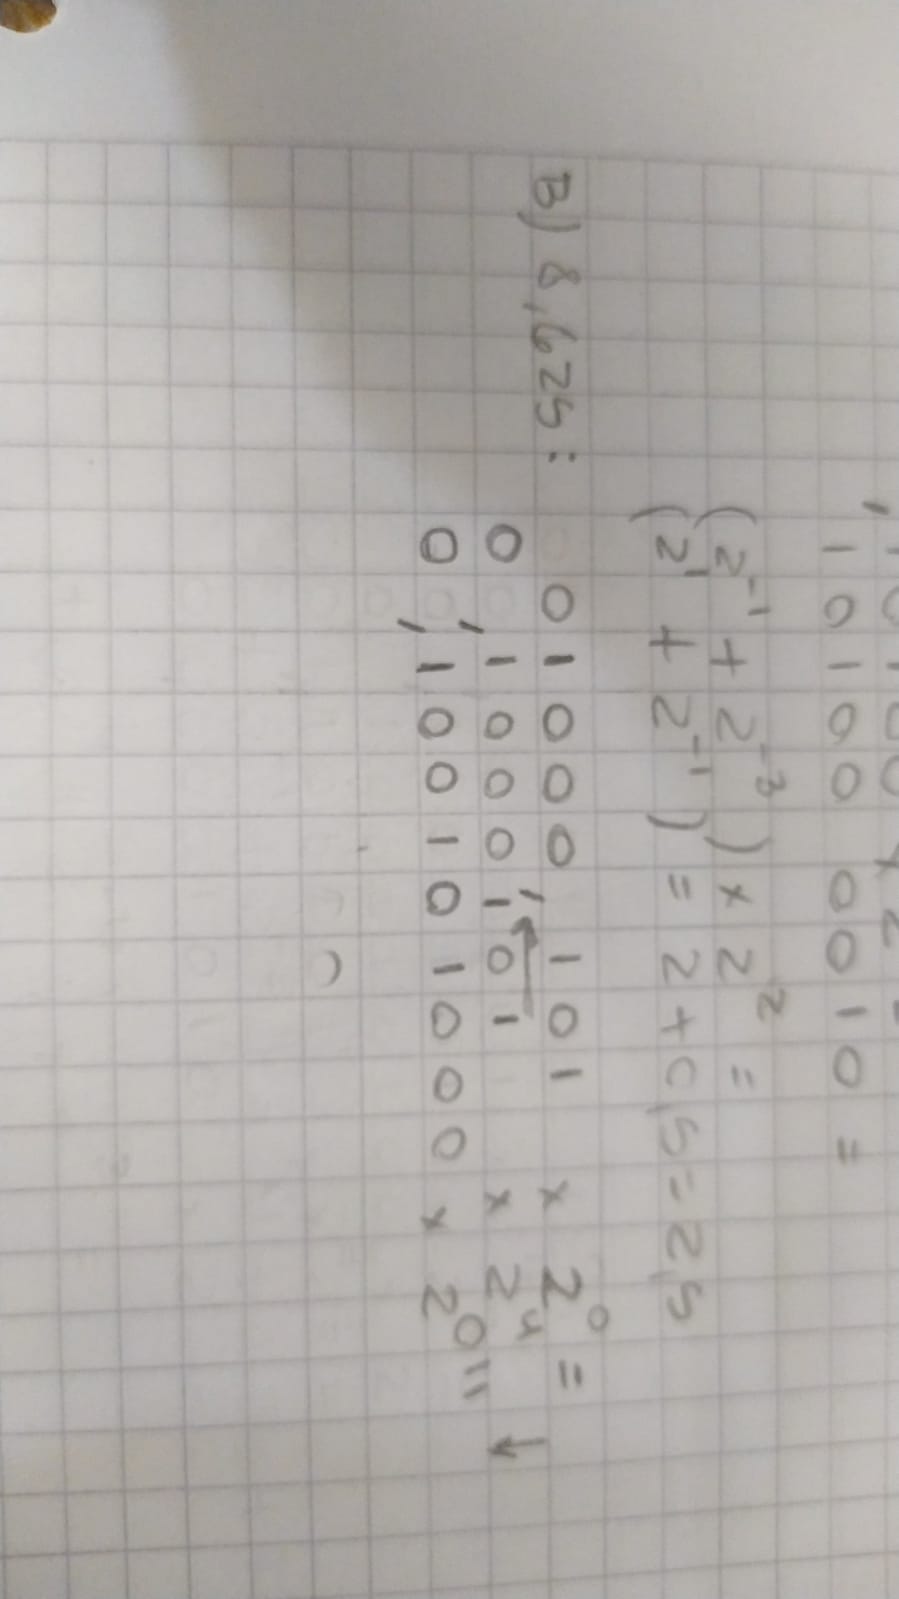 1 0 1 0 0 0 0 1 0 =
(2⁻¹ + 2⁻³) × 2² =
(2¹ + 2⁻¹) = 2 + 0,5 = 2,5
B) 8,625: 0 1 0 0 0 , 1 0 1 × 2⁰ =
0 , 1 0 0 0 1 0 1 × 2⁴ ↓
0 , 1 0 0 1 0 1 0 0 0 × 2⁰¹¹